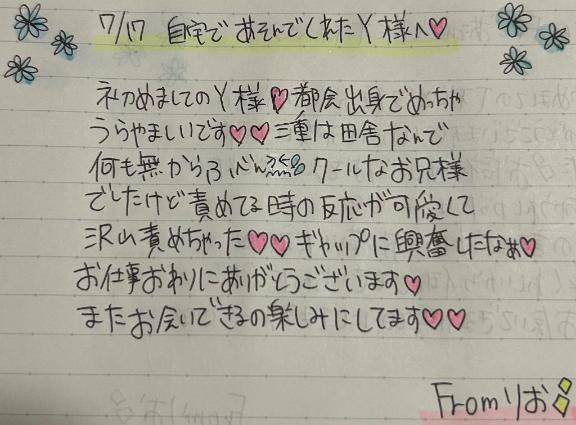 7/17 自宅であそんでくれたY様へ♡
初めましてのY様♡都会出身でめっちゃ
うらやましいです♡♡三重は田舎なんで
何も無からふべん クールなお兄様
でしたけど責めてる時の反応が可愛くて
沢山責めちゃった♡♡ギャップに興奮したなぁ♡
お仕事おわりにありがとうございます♡
またお会いできるの楽しみにしてます♡♡
Fromりお